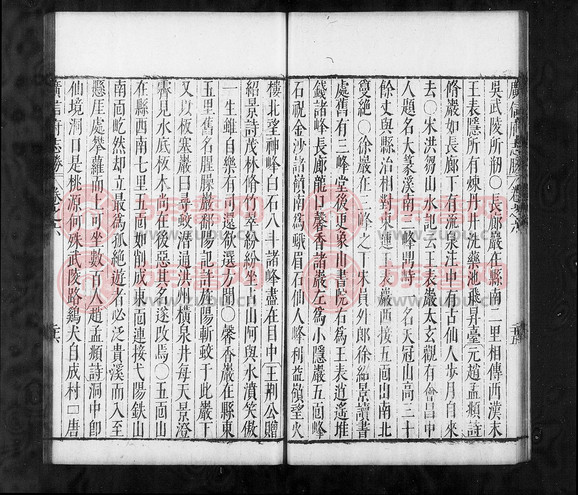 吳武陵所刱〇長廊巖在縣南二里相傳西漢末
王表隱所有煉丹井洗藥池飛昇臺元趙孟頫詩
脩巖如長廊下有流泉注中有古仙人步月自來
去〇宋洪芻山水記云王表巖太玄觀有會昌中
人題名大篆溪南三峰鼎峙一名天冠山高三十
餘丈與縣治相對東連王表巖西接五面山南北
夐絕〇徐巖在三峰之一宋員外郎徐紹景讀書
處舊有三峰堂後更象山書院右為王表逍遙堆
錢諸峰長廊龍口馨香諸巖左為小隱巖五面峰
石祝金沙諸嶺南為蛾眉石仙人峰利益嶺望火
樓北望神峰白石八十諸峰盡在目中王荊公贈
紹景詩茂林脩竹翠紛紛坐占山阿與水濆笑傲
一生雖自樂有司還欲選方聞〇馨香巖在縣東
五里舊名腥臊巖鄱陽記許旌陽斬蛟于此巖下
又以板塞巖曰尋蛟潛過洪州橫泉井每天景澄
霽見水底板木尚在後惡其名遂改焉〇五面山
在縣西南七里五面如削成東面連接弋陽鉄山
南面屹然却立最為孤絕遊者必泛貴溪而入至
懸厓處攀蘿而上可坐數百人趙孟頫詩洞中卽
仙境洞口是桃源何殊武陵路鷄犬自成村囗唐
廣信府